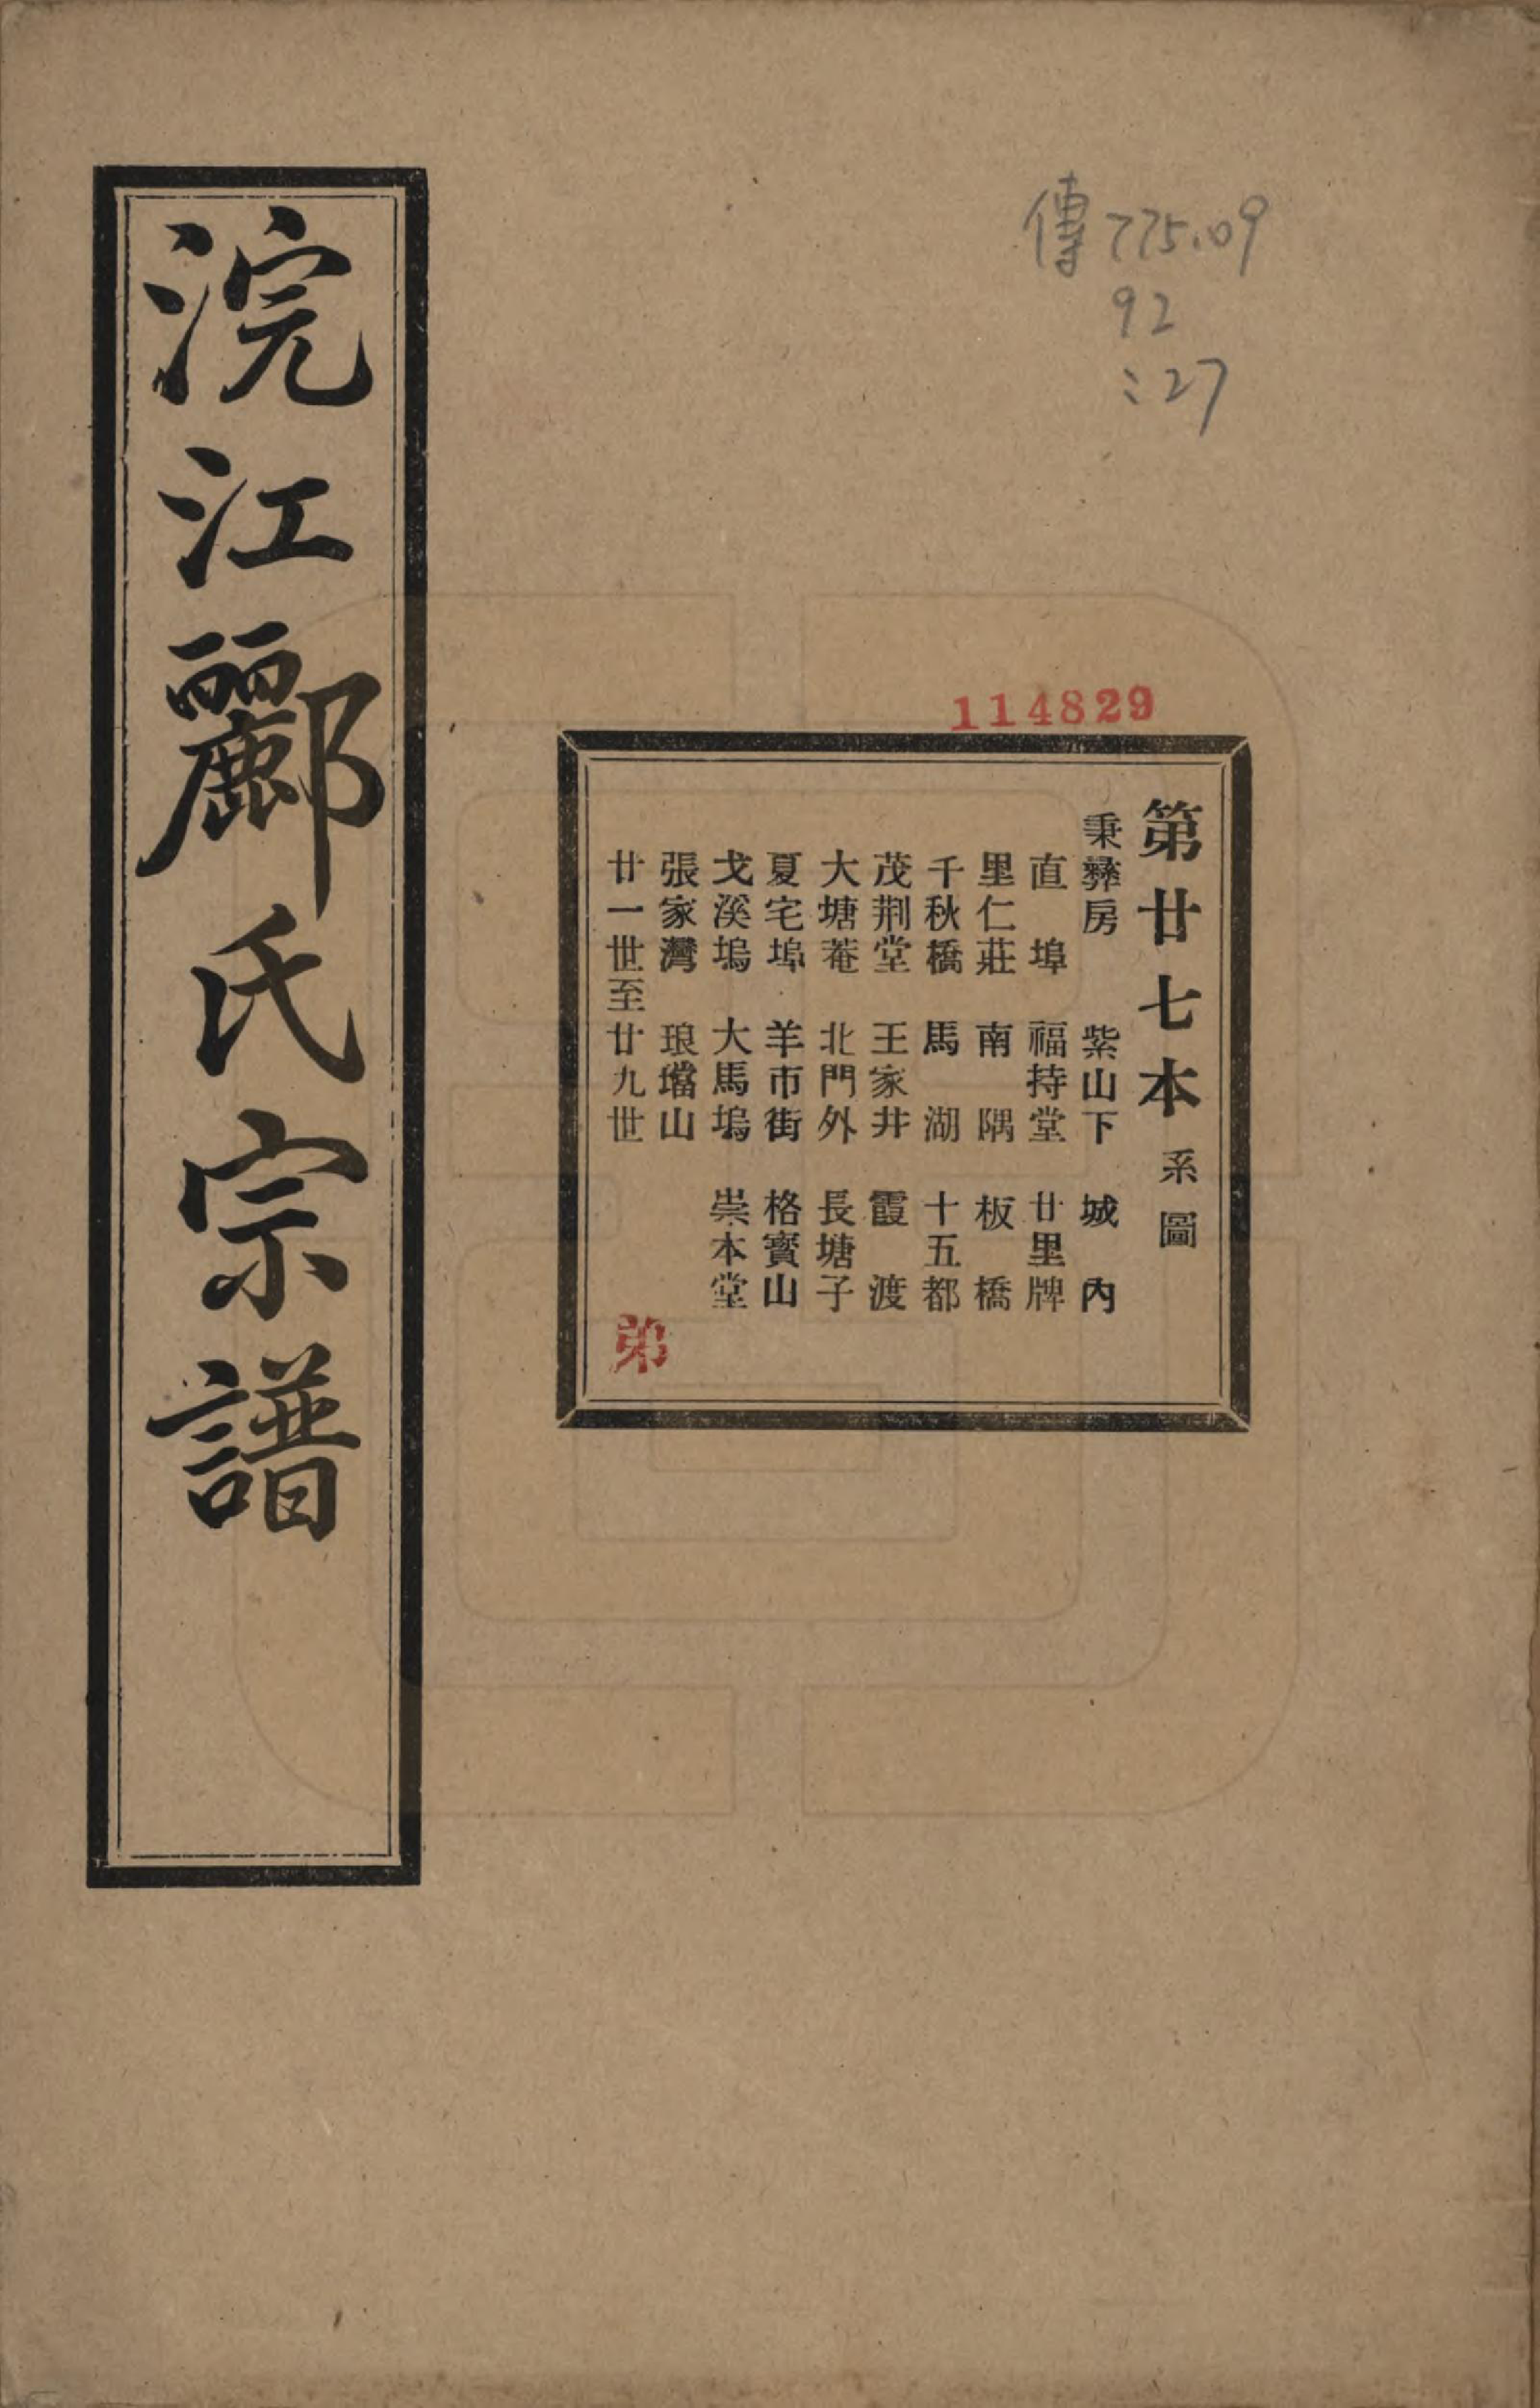 傳775.09
92
:27
114829
第廿七本系圖
秉彝房 紫山下 城內
直埠 福持堂 廿里牌
里仁莊 南隅 板橋
千秋橋 馬湖 十五都
茂荆堂 王家井 霞渡
大塘菴 北門外 長塘子
夏宅埠 羊市街 格寶山
戈溪塢 大馬塢 崇本堂
張家灣 琅璫山
廿一世至廿九世
弟
浣江酈氏宗譜